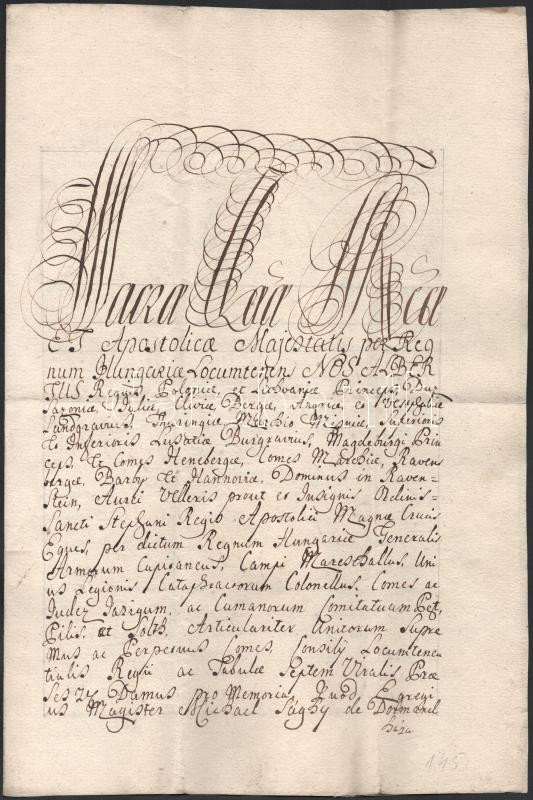 Sacra Caa Rcoa
ET Apostolicæ Majestatis per Reg
num Hungariæ Locumtenens NOS ALBER
TUS Regius Poloniæ et Lithvaniæ Princeps, Dux
Saxoniæ, Juliæ Cliviæ Bergæ, Angriæ et Vestphaliæ
Landgravius Thuringiæ Marchio Misniæ, Superioris
et Inferioris Lusatiæ Burgravius, Magdeburgi Prin
ceps, et Comes Henebergæ, Comes Marchiæ, Ravens
bergæ, Barby et Hannoviæ, Dominus in Raven-
stein, Aurei Velleris prout et Insignis Ordinis-
Sancti Stephani Regis Apostolici Magnæ Crucis
Eques, per dictum Regnum Hungariæ Generalis
Armorum Capitaneus, Campi Mareschallus, Uni
us Legionis Cataphractorum Colonellus, Comes ac
Judex Jazigum, ac Cumanorum Comitatuum Pest,
Pilis, et Solth, Articulariter Unitorum Supre
mus ac Perpetuus Comes, Consilij Locumtenen
tialis Regii ac Tabulæ Septem Viralis Præ
ses Damus pro Memoria, Quod Egregi
us Magister Michael Sághy de Dormánd
háza
145